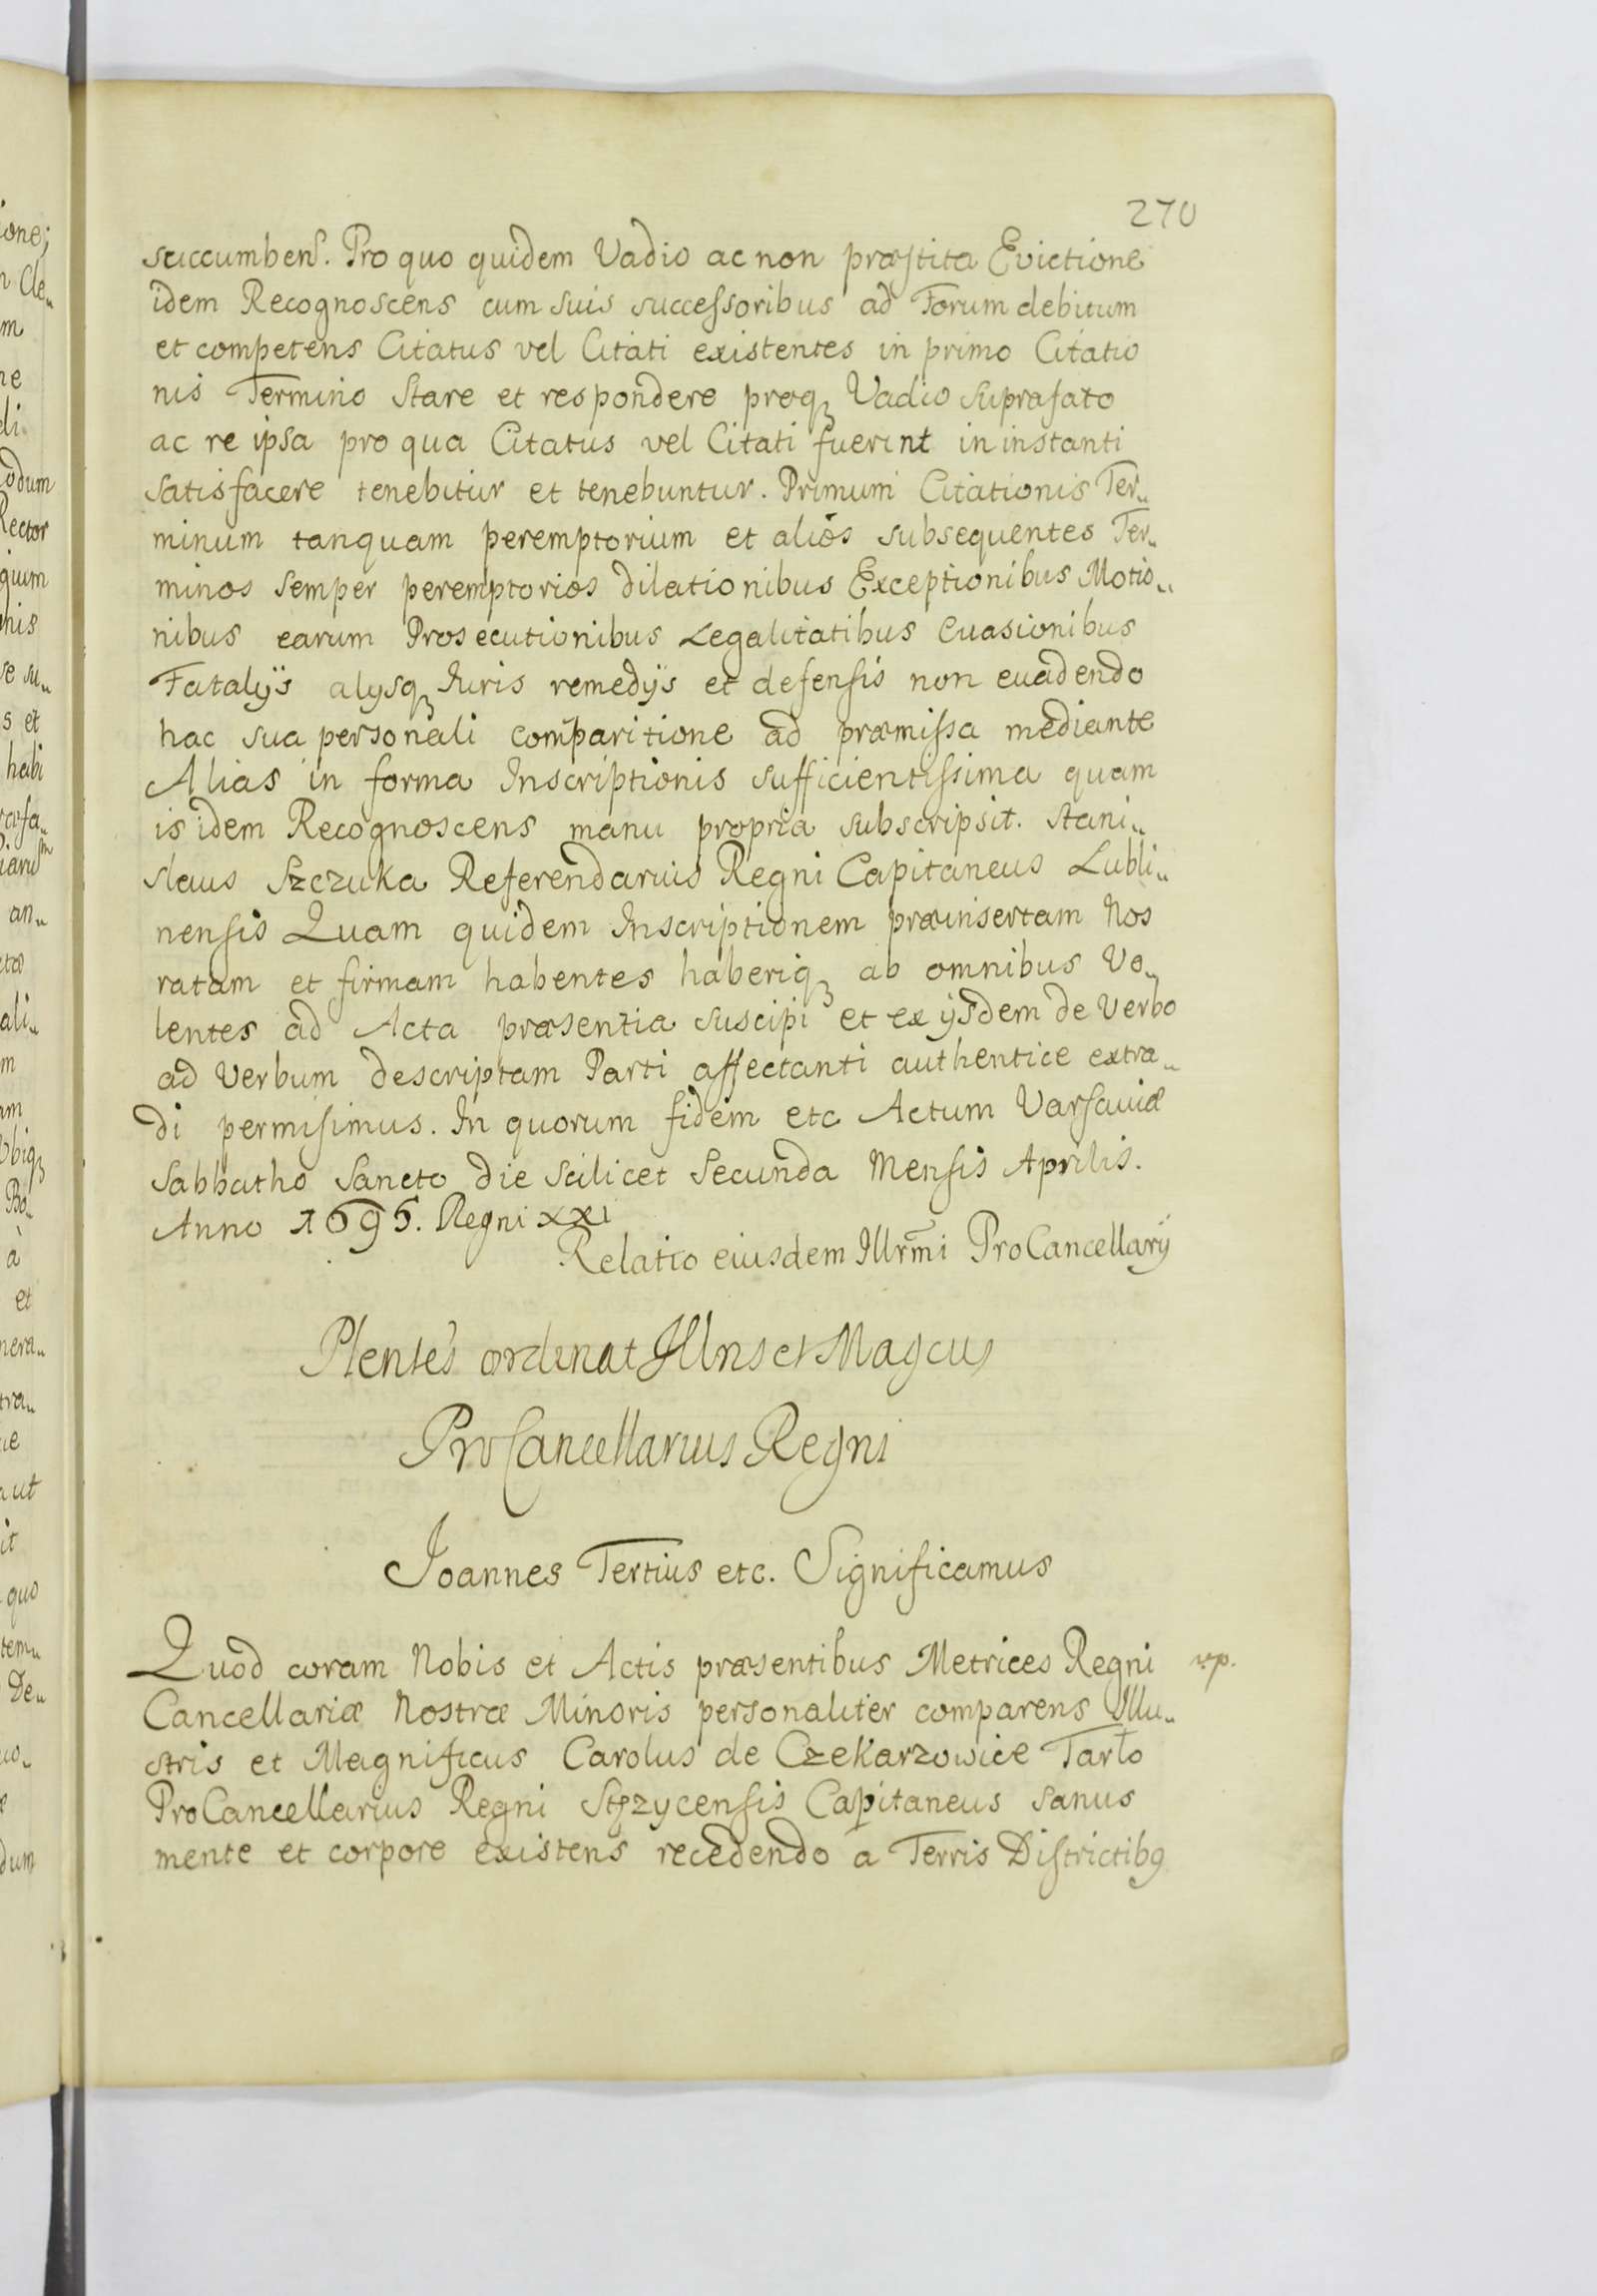 270
succumbens. Pro quo quidem Vadio ac non præstita Evictione
idem Recognoscens cum suis successoribus ad Forum debitum
et competens Citatus vel Citati existentes in primo Citatio
nis Termino Stare et respondere proq₃ Vadio suprafato
ac re ipsa pro qua Citatus vel Citati fuerint in instanti
satisfacere tenebitur et tenebuntur. Primum Citationis Ter„
minum tanquam peremptorium et alios subsequentes Ter„
minos semper peremptorios dilationibus Exceptionibus Motio„
nibus earum Prosecutionibus Legalitatibus Evasionibus
Fatalÿs alysq₃ Iuris remedÿs et defensis non euadendo
hac sua personali comparitione ad præmissa mediante
Alias in forma Inscriptionis sufficientissima quam
is idem Recognoscens manu propria subscripsit. Stani„
slaus Szczuka Referendarius Regni Capitaneus Lubli„
nensis Quam quidem Inscriptionem præinsertam Nos
ratam et firmam habentes haberiq₃ ab omnibus Vo„
lentes ad Acta præsentia suscipi et ex ÿsdem de Verbo
ad Verbum descriptam Parti affectanti authentice extra„
di permisimus. In quorum fidem etc Actum Varsauiæ
Sabbatho Sancto die scilicet Secunda Mensis Aprilis.
Anno 1695. Regni XXI
Relatio eiusdem Illrmi ProCancellarÿ
Plentes ordinat Illns et Magcus
ProCancellarius Regni
Joannes Tertius etc. Significamus
Quod coram Nobis et Actis præsentibus Metrices Regni
Cancellariæ Nostræ Minoris personaliter comparens Illu„
stris et Magnificus Carolus de Czekarzowice Tarło
ProCancellarius Regni Stęzycensis Capitaneus sanus
mente et corpore existens recedendo a Terris Districtibꝯ